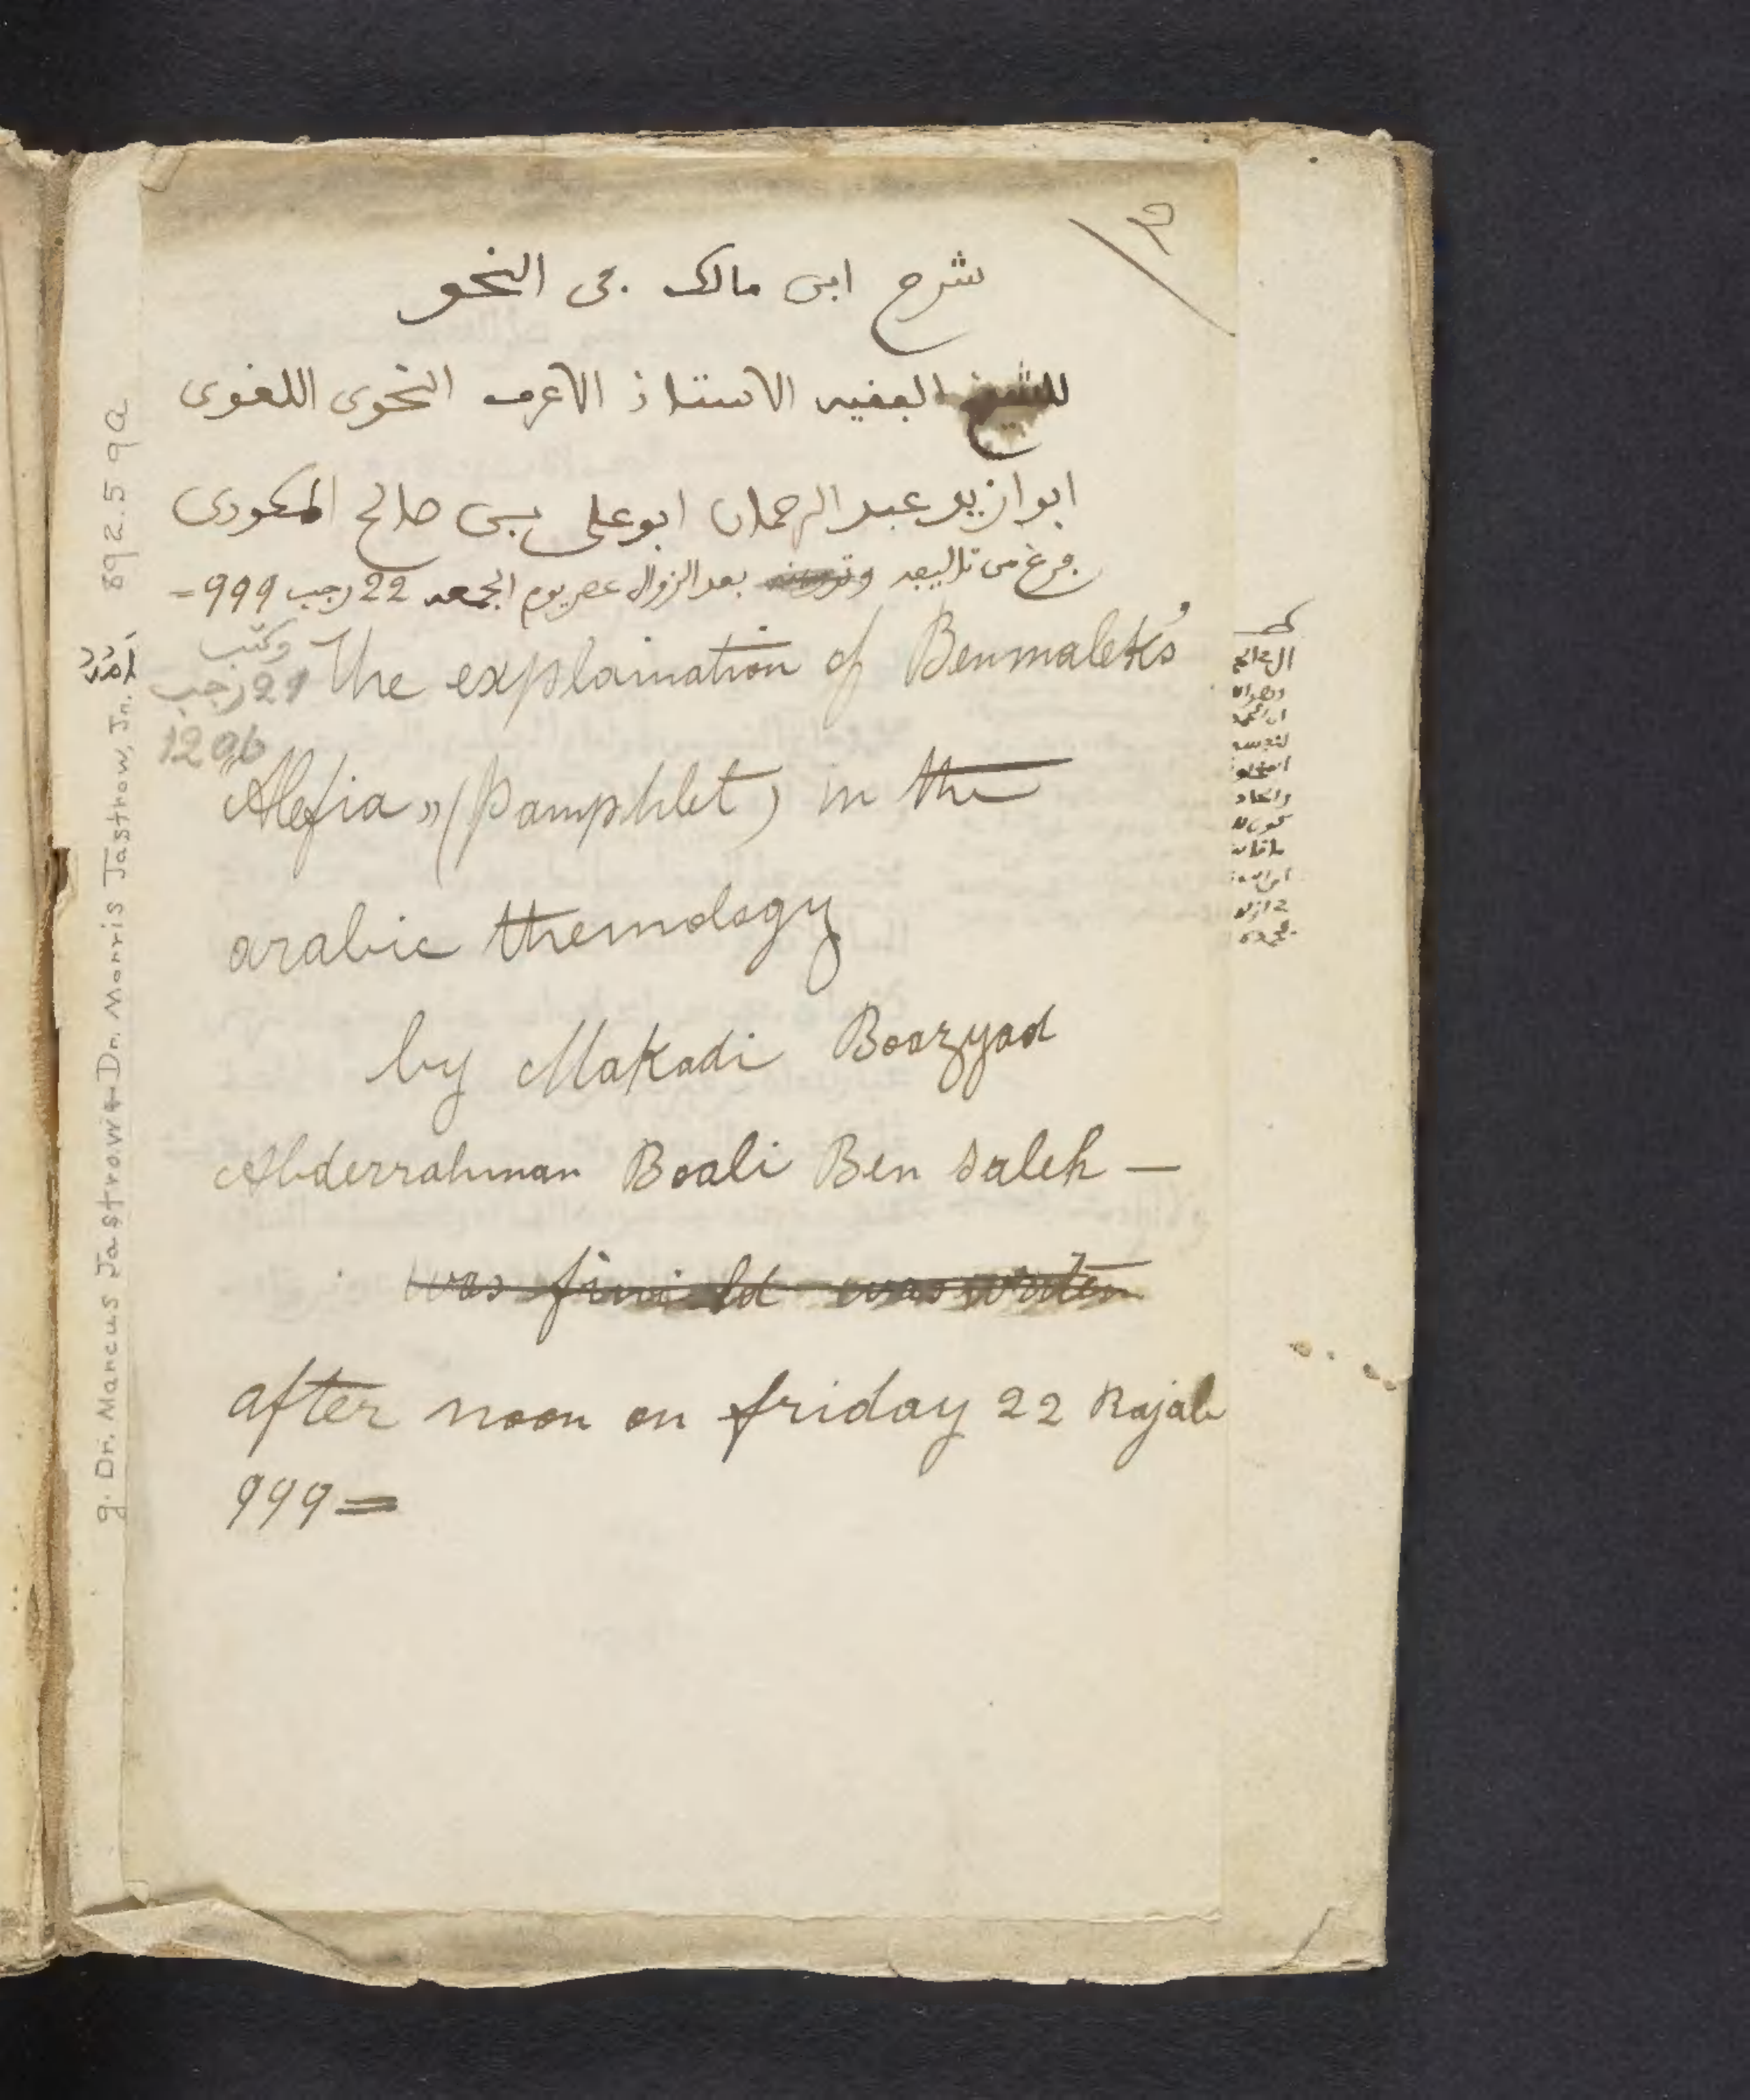 شرح ابن مالك في النحو
للشيخ الفقيه الاستاذ الاعرف النحوى اللغوى
ابوازيد عبد الرحمان ابو على بن صالح المكودى
فرغ من تاليفه بعد الزوال عصر يوم الجمعه 22 رجب 999 =
وكتب
21 رجب
1206
The explaination of Benmalek's
"Alefia" (Pamphlet) in the
arabic themology
by Makadi Boazyad
Abderrahman Boali Ben Saleh —
was finishd was writen
after noon on friday 22 Rajab
999 =
g. Dr. Marcus Jastrow + Dr. Morris Jastrow, Jr. 892.59a